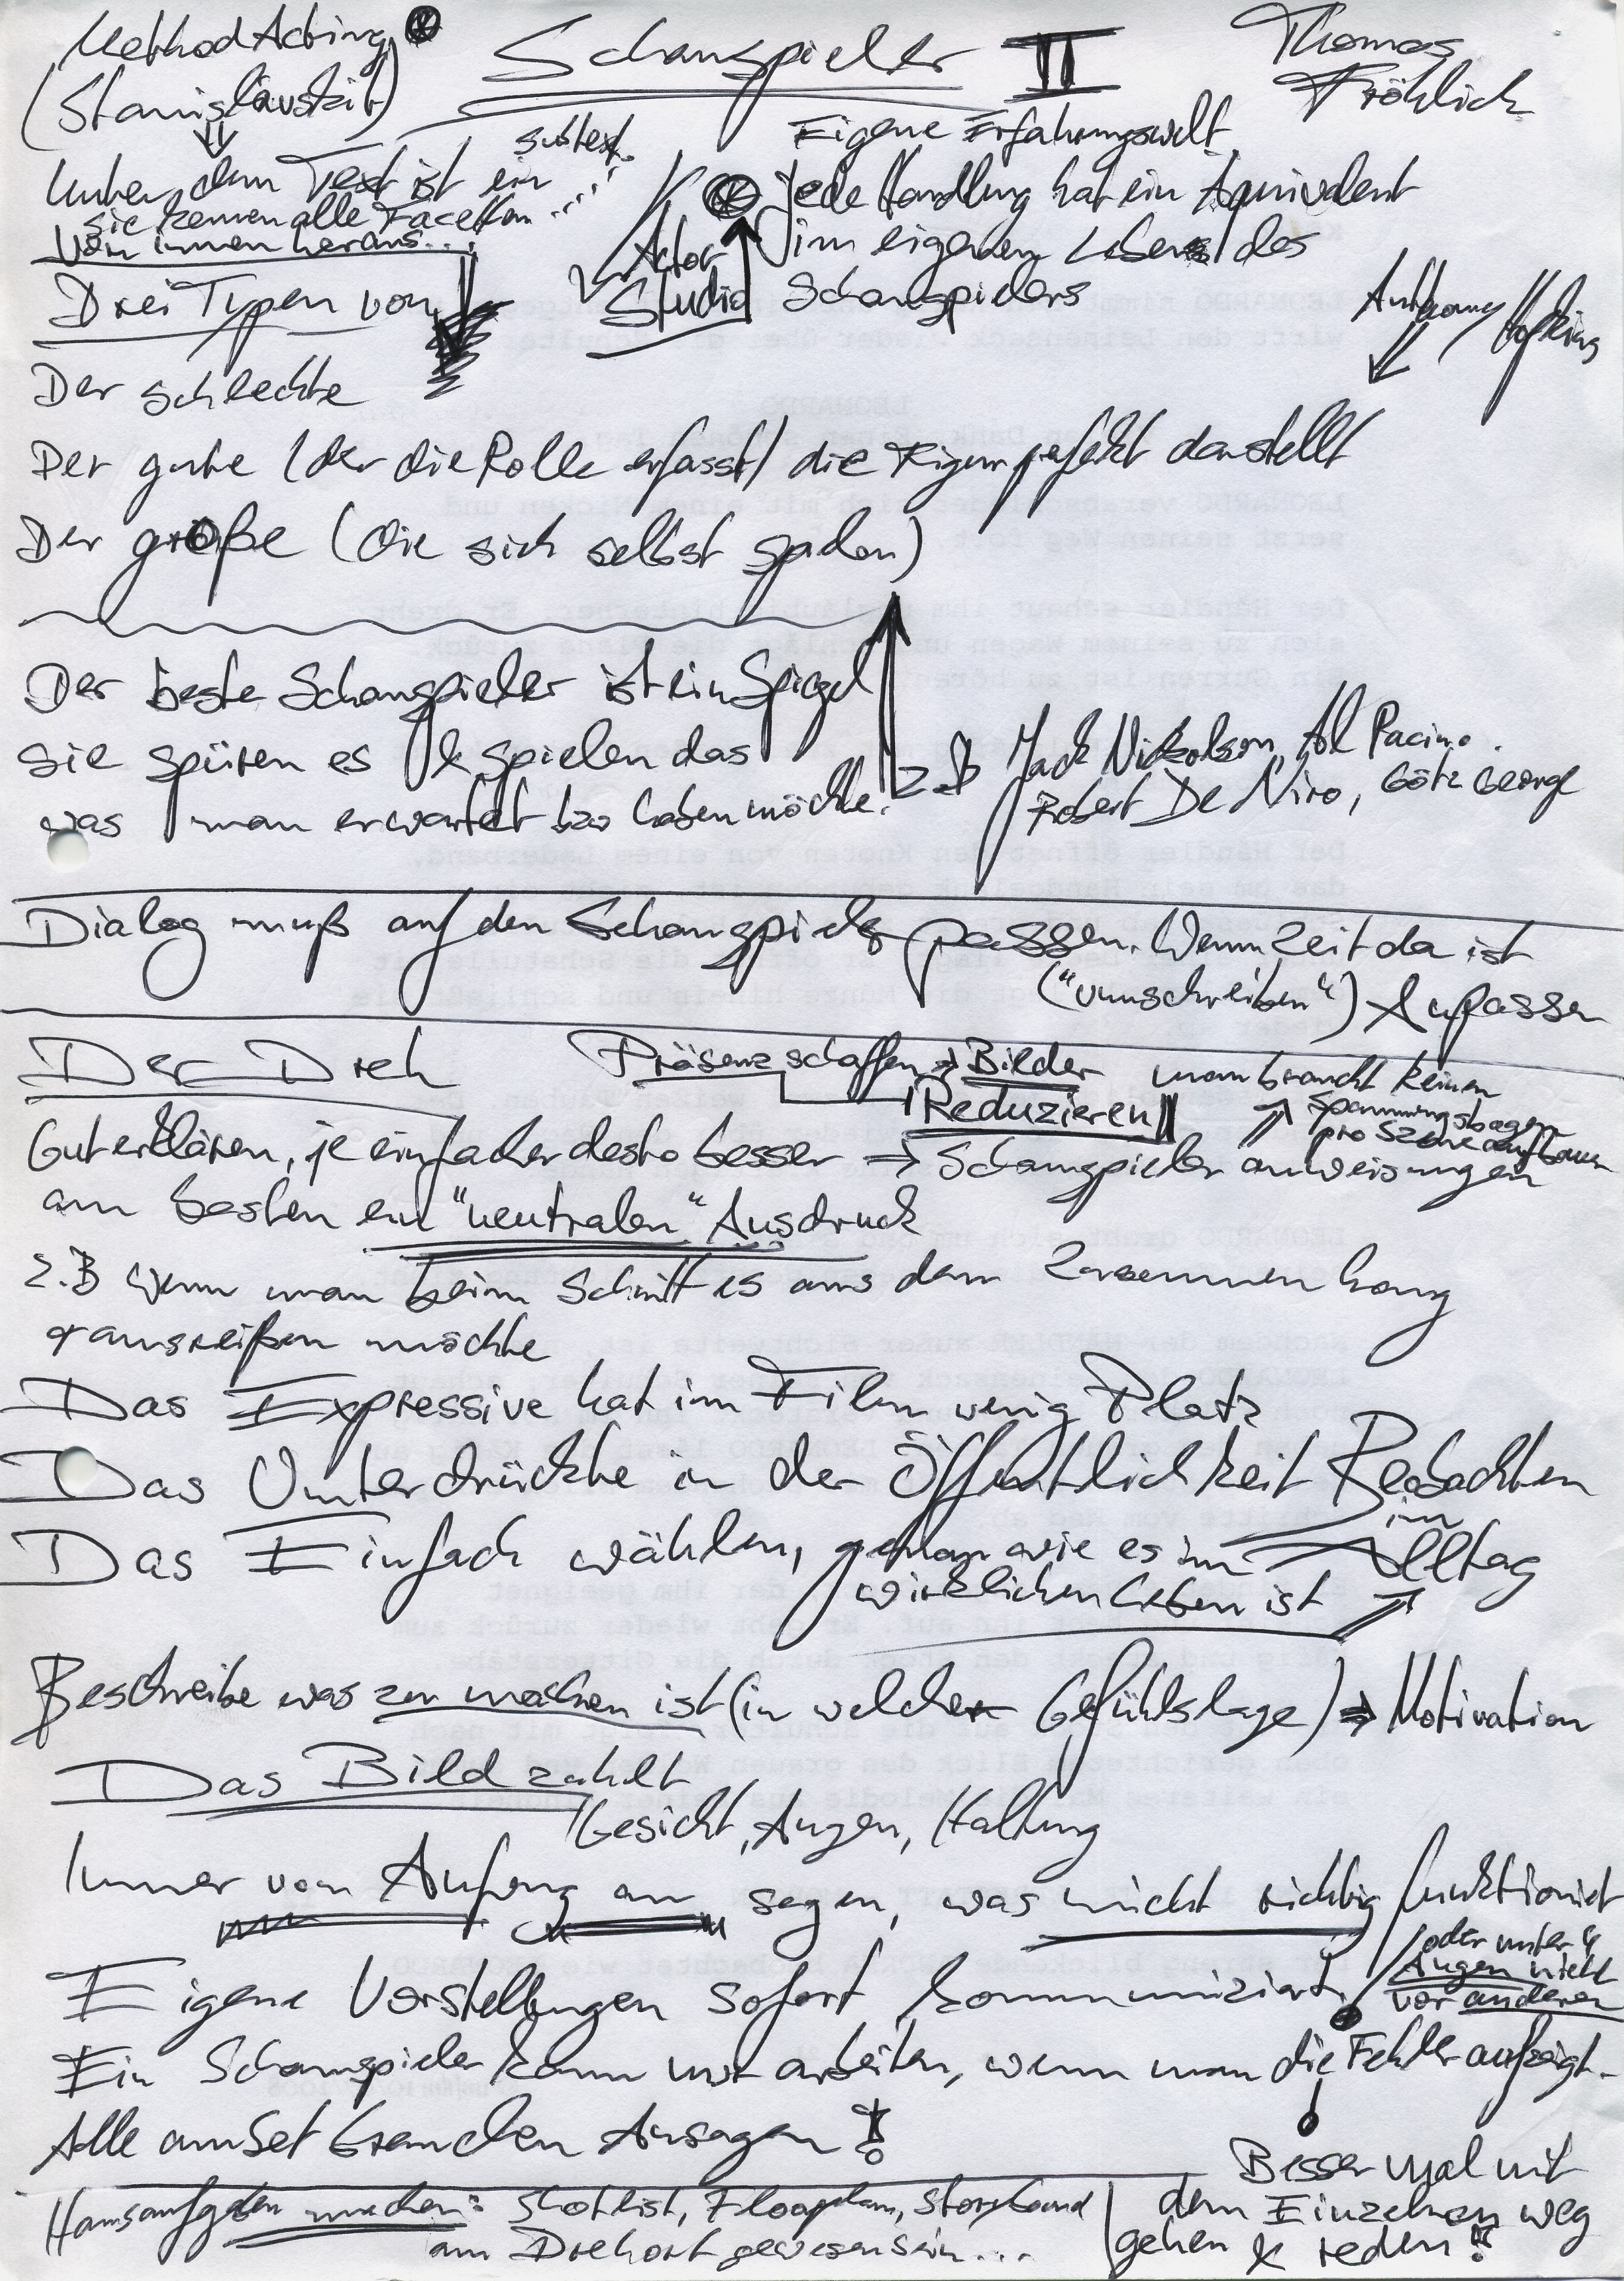 Method Acting
Schauspieler II
Thomas
Fröhlich
(Stanislawski)
Subtext
Unter dem Text ist ein ......
sie kennen alle Facetten
Von innen heraus...
Eigene Erfahrungswelt
Jede Handlung hat ein Äquivalent
im eigenen Leben des
Schauspielers
Actor
Studio
Drei Typen von
Anthony Hopkins
Der schlechte
Der gute (der die Rolle erfasst) die Figur perfekt darstellt
Der große (die sich selbst spielen)
Der beste Schauspieler ist ein Spiegel
sie spüren es & spielen das
was man erwartet bzw haben möchte.
z.B Jack Nickolson, Al Pacino.
Robert De Niro, Götz George
Dialog muß auf den Schauspieler passen. Wenn Zeit da ist
("umschreiben") Anpassen
Der Dreh
Präsenz schaffen → Bilder
Reduzieren
man braucht keinen
Spannungsbogen
pro Szene aufbauen
Gut erklären, je einfacher desto besser ⇒ Schauspieler anweisungen
am besten ein "neutralen" Ausdruck
z.B wenn man beim Schnitt es aus dem Zusammenhang
rausreißen möchte
Das Expressive hat im Film wenig Platz
Das Unterdrückte in der Öffentlichkeit Beobachten
im
Alltag
Das Einfach wählen, genau wie es im
wirklichen Leben ist
Beschreibe was zu machen ist (in welcher Gefühlslage) ⇒ Motivation
Das Bild zählt
Gesicht, Augen, Haltung
Immer von Anfang an sagen, was nicht richtig funktioniert
oder unter 4
Augen nicht
vor anderen
Eigene Vorstellungen sofort kommuniziert!
Ein Schauspieler kann nur arbeiten, wenn man die Fehler aufzeigt.
Alle am Set brauchen Ansagen!
Besser mal mit
dem Einzelnen weg
gehen & reden!
Hausaufgaben machen: Shotlist, Floorplan, Storyboard
am Drehort gewesen sein...